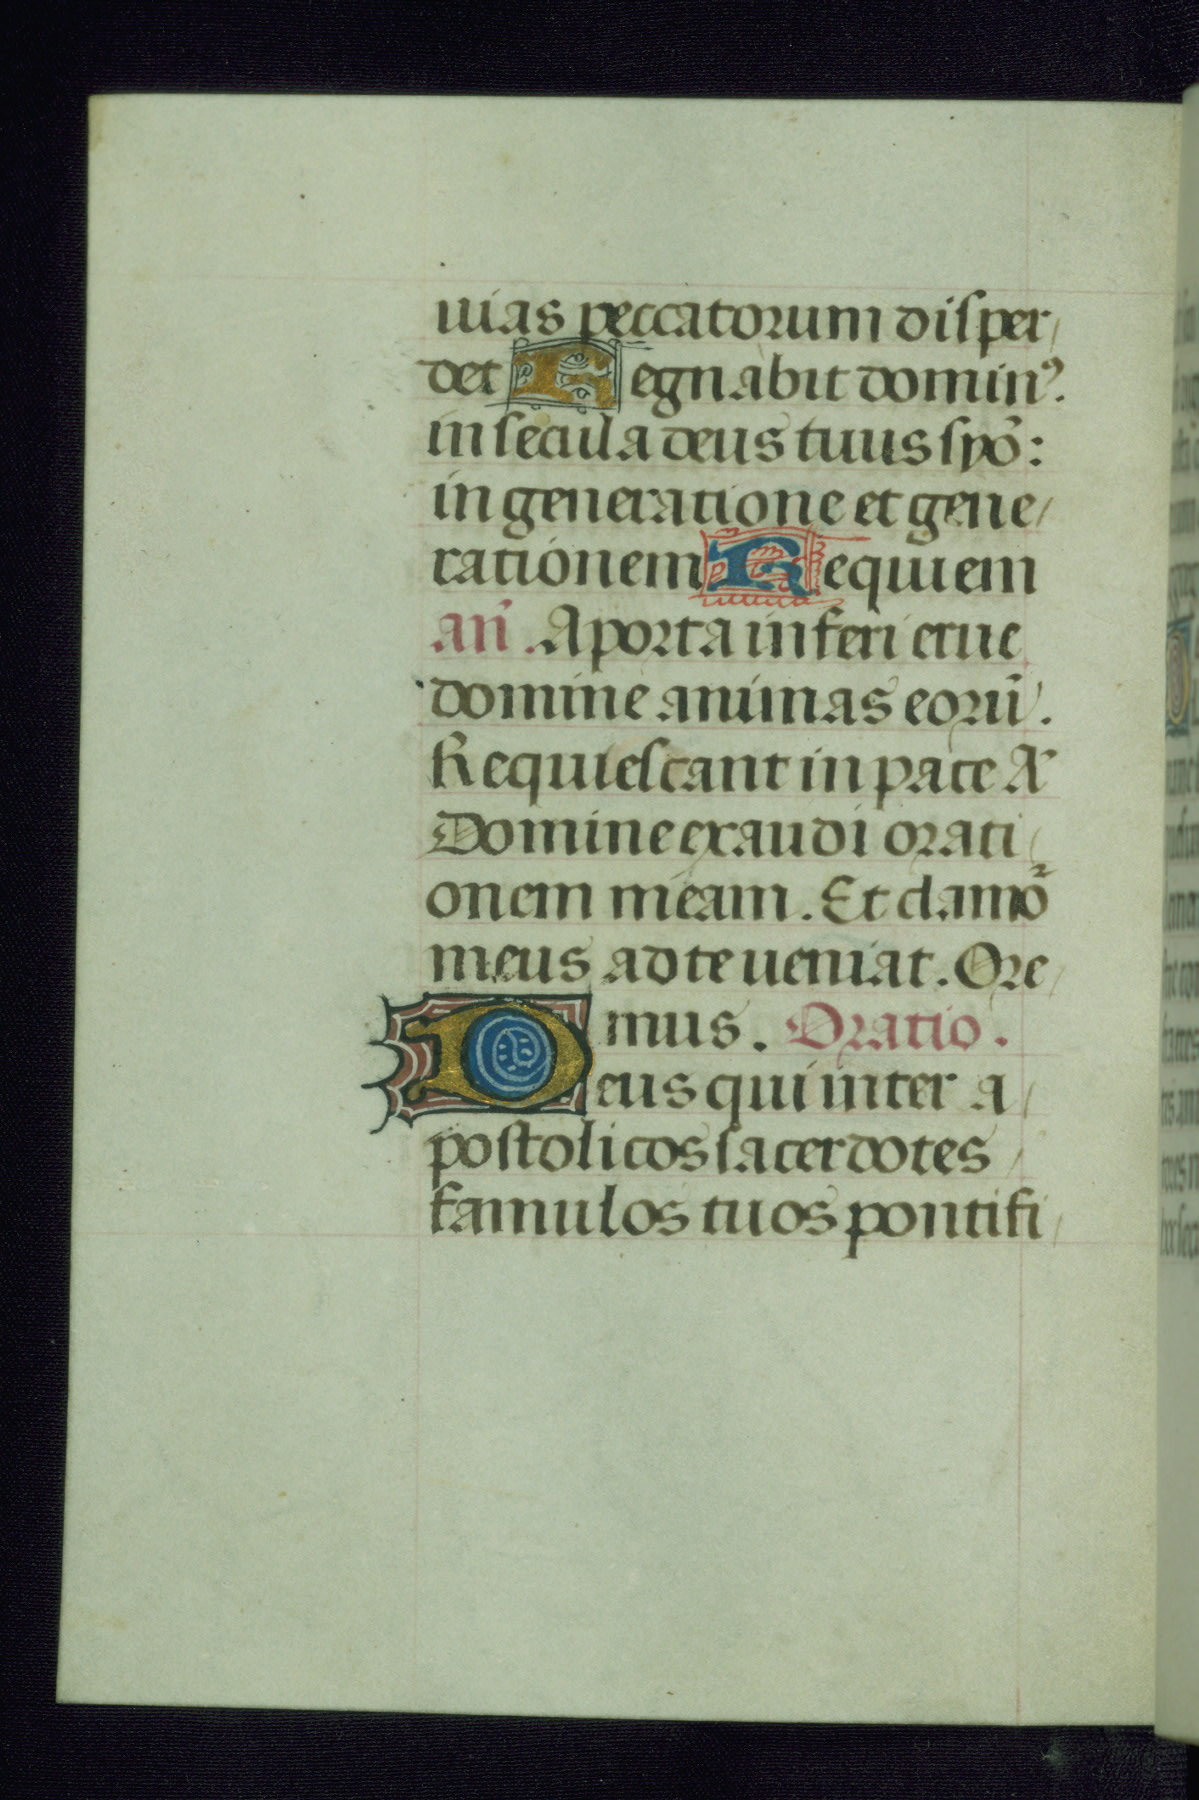 uias peccatorum disper
det Regnabit dominꝰ.
in secula deus tuus syō:
in generatione et gene
rationem Requiem
an̄. A porta inferi erue
domine animas eorū.
Requiescant in pace A
Domine exaudi orati
onem meam. Et clamō
meus ad te ueniat. Ore
mus. Oratio.
Deus qui inter a
postolicos sacerdotes
famulos tuos pontifi